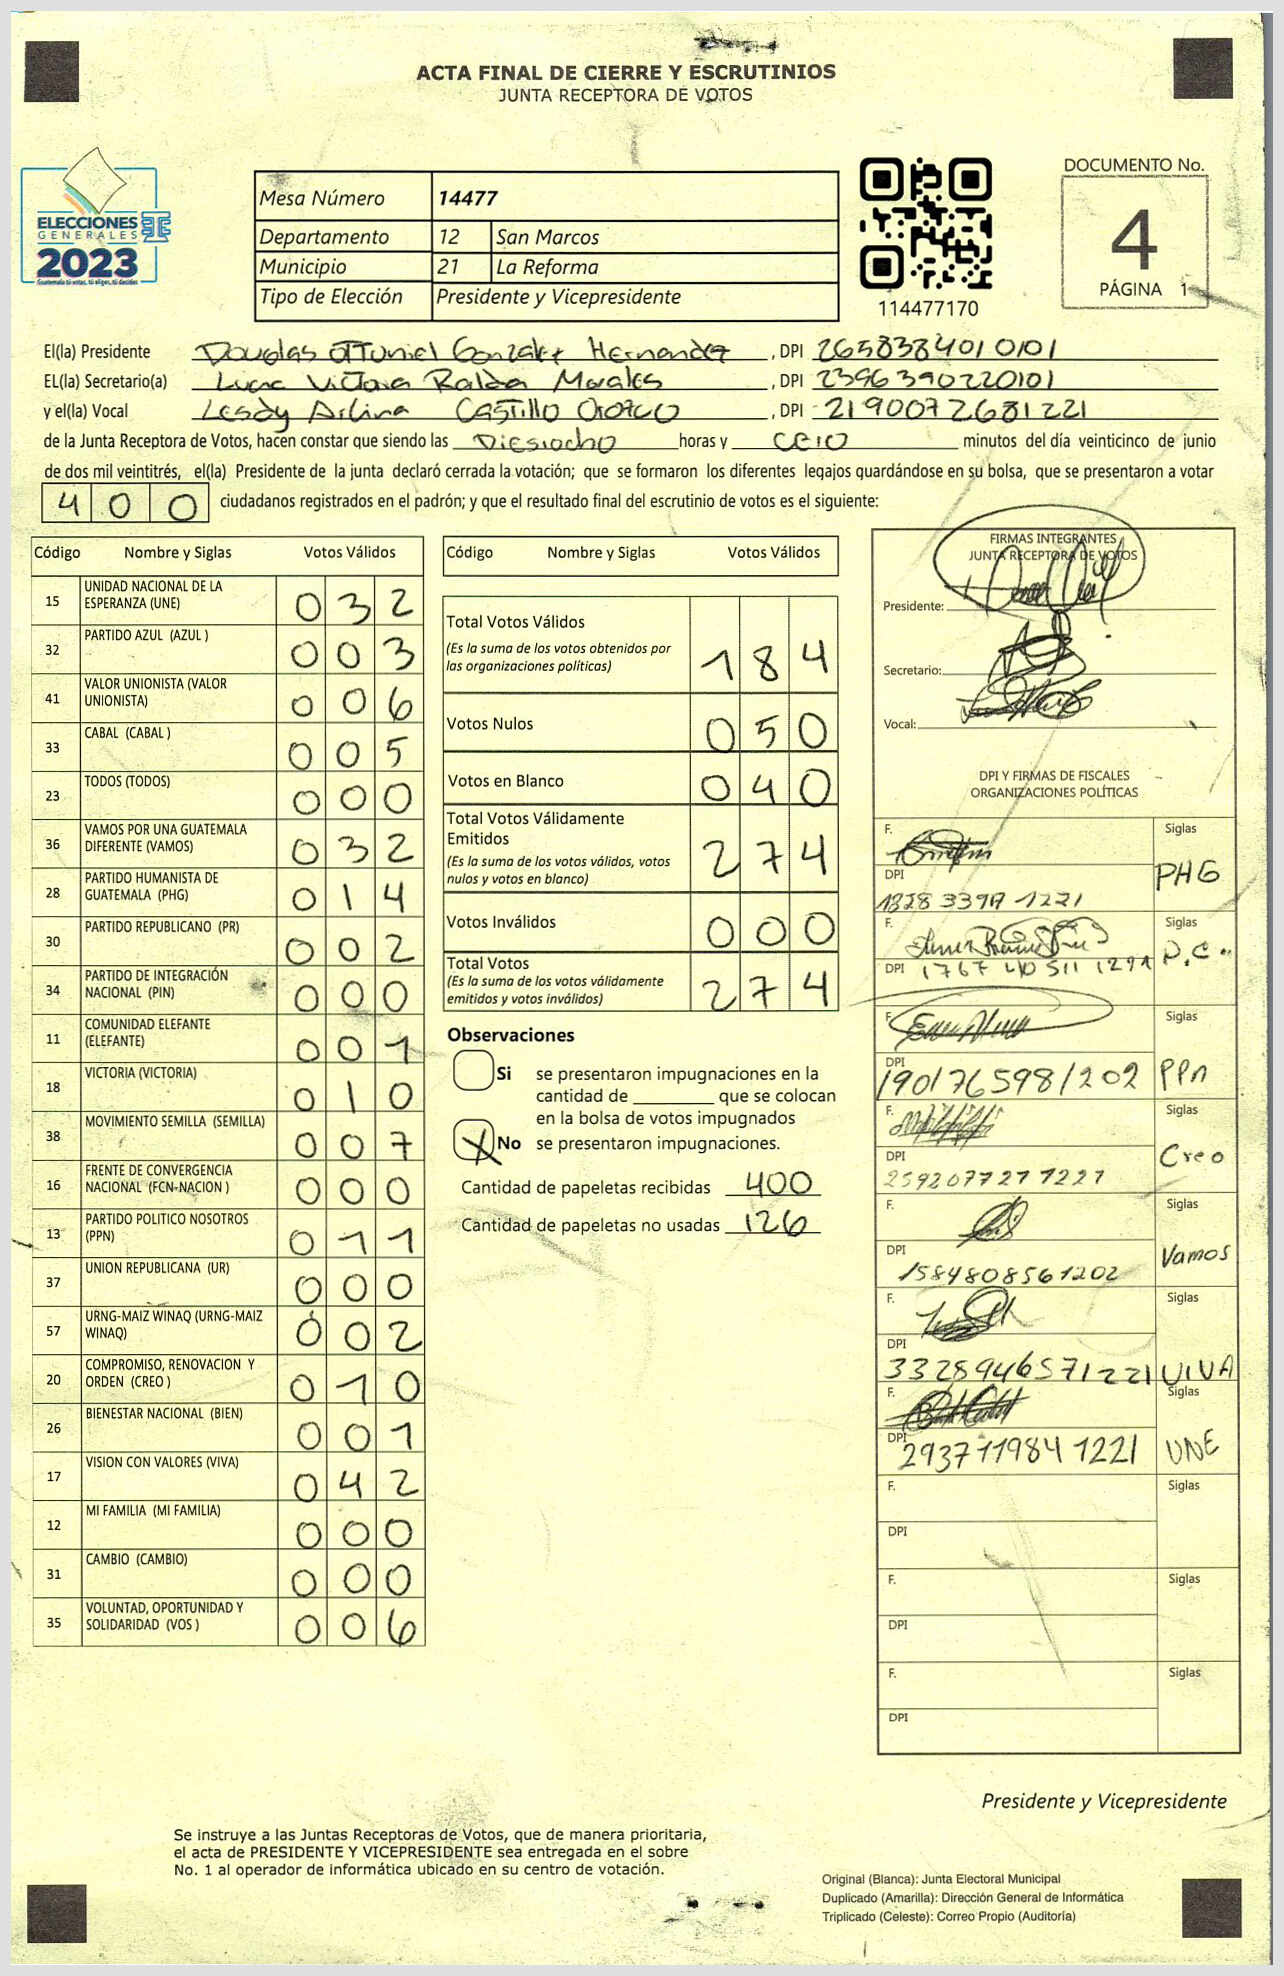 ACTA FINAL DE CIERRE Y ESCRUTINIOS
JUNTA RECEPTORA DE VOTOS
ELECCIONES
GENERALES
2023
Guatemala tú votas, tú eliges, tú decides
Mesa Número 14477
Departamento 12 San Marcos
Municipio 21 La Reforma
Tipo de Elección Presidente y Vicepresidente
114477170
DOCUMENTO No.
4
PÁGINA 1
El(la) Presidente Douglas Ottuniel Gonzalez Hernandez , DPI 2658384010101
EL(la) Secretario(a) Lucia Victoria Ralda Morales , DPI 2396390220101
y el(la) Vocal Lesdy Arlina Castillo Orozco , DPI 2190072681221
de la Junta Receptora de Votos, hacen constar que siendo las Diesiocho horas y CEIO minutos del día veinticinco de junio
de dos mil veintitrés, el(la) Presidente de la junta declaró cerrada la votación; que se formaron los diferentes legajos guardándose en su bolsa, que se presentaron a votar
400 ciudadanos registrados en el padrón; y que el resultado final del escrutinio de votos es el siguiente:
Código Nombre y Siglas Votos Válidos
15 UNIDAD NACIONAL DE LA ESPERANZA (UNE) 032
32 PARTIDO AZUL (AZUL ) 003
41 VALOR UNIONISTA (VALOR UNIONISTA) 006
33 CABAL (CABAL ) 005
23 TODOS (TODOS) 000
36 VAMOS POR UNA GUATEMALA DIFERENTE (VAMOS) 032
28 PARTIDO HUMANISTA DE GUATEMALA (PHG) 014
30 PARTIDO REPUBLICANO (PR) 002
34 PARTIDO DE INTEGRACIÓN NACIONAL (PIN) 000
11 COMUNIDAD ELEFANTE (ELEFANTE) 001
18 VICTORIA (VICTORIA) 010
38 MOVIMIENTO SEMILLA (SEMILLA) 007
16 FRENTE DE CONVERGENCIA NACIONAL (FCN-NACION ) 000
13 PARTIDO POLITICO NOSOTROS (PPN) 011
37 UNION REPUBLICANA (UR) 000
57 URNG-MAIZ WINAQ (URNG-MAIZ WINAQ) 002
20 COMPROMISO, RENOVACION Y ORDEN (CREO ) 010
26 BIENESTAR NACIONAL (BIEN) 001
17 VISION CON VALORES (VIVA) 042
12 MI FAMILIA (MI FAMILIA) 000
31 CAMBIO (CAMBIO) 000
35 VOLUNTAD, OPORTUNIDAD Y SOLIDARIDAD (VOS ) 006
Código Nombre y Siglas Votos Válidos
Total Votos Válidos 184
(Es la suma de los votos obtenidos por
las organizaciones políticas)
Votos Nulos 050
Votos en Blanco 040
Total Votos Válidamente
Emitidos 274
(Es la suma de los votos válidos, votos
nulos y votos en blanco)
Votos Inválidos 000
Total Votos 274
(Es la suma de los votos válidamente
emitidos y votos inválidos)
Observaciones
Si se presentaron impugnaciones en la
cantidad de ________ que se colocan
en la bolsa de votos impugnados
X No se presentaron impugnaciones.
Cantidad de papeletas recibidas 400
Cantidad de papeletas no usadas 126
FIRMAS INTEGRANTES
JUNTA RECEPTORA DE VOTOS
Presidente:
Secretario:
Vocal:
DPI Y FIRMAS DE FISCALES
ORGANIZACIONES POLÍTICAS
F. Siglas
DPI PHG
F. Siglas
DPI 1767 40511 1221 P.C..
F. Siglas
DPI 1901765981202 PPn
F. Siglas
DPI 2592077271221 Creo
F. Siglas
DPI 1584808561202 Vamos
F. Siglas
DPI 3328946571221 VIVA
F. Siglas
DPI 2937119841221 UNE
F. Siglas
DPI
F. Siglas
DPI
F. Siglas
DPI
Presidente y Vicepresidente
Se instruye a las Juntas Receptoras de Votos, que de manera prioritaria,
el acta de PRESIDENTE Y VICEPRESIDENTE sea entregada en el sobre
No. 1 al operador de informática ubicado en su centro de votación.
Original (Blanca): Junta Electoral Municipal
Duplicado (Amarilla): Dirección General de Informática
Triplicado (Celeste): Correo Propio (Auditoría)